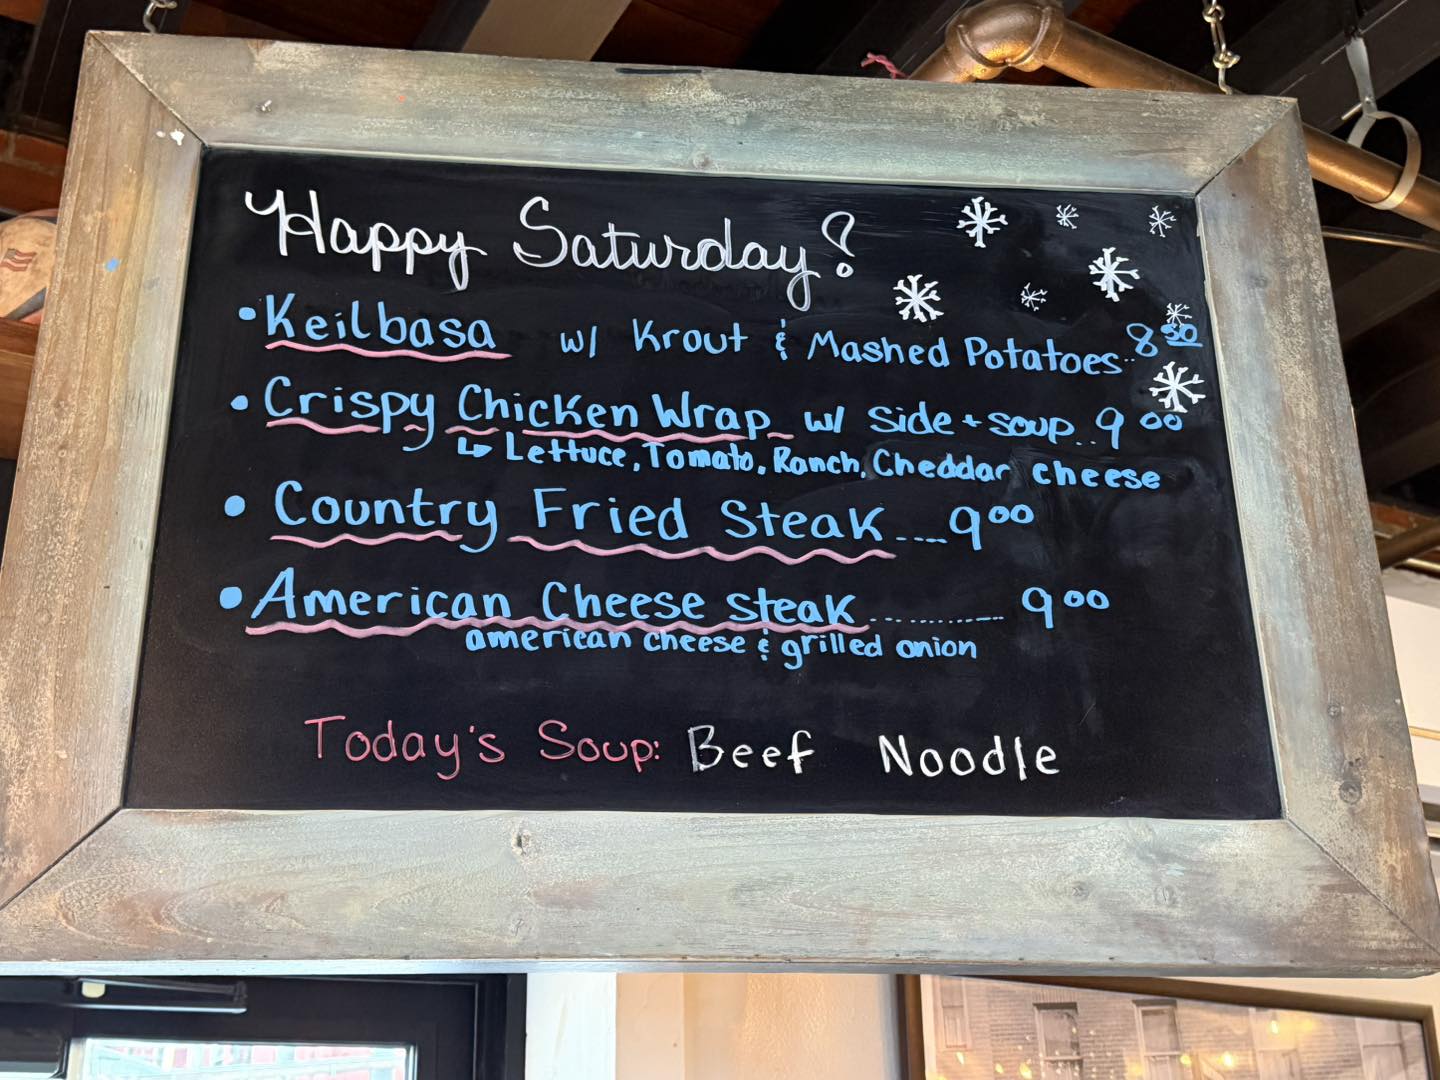 Happy Saturday!
• Keilbasa w/ Krout & Mashed Potatoes.. 8 50
• Crispy Chicken Wrap w/ side + soup.. 9 00
↳ Lettuce, Tomato, Ranch, Cheddar cheese
• Country Fried Steak.... 9 00
• American Cheese steak............. 9 00
american cheese & grilled onion
Today's Soup: Beef Noodle